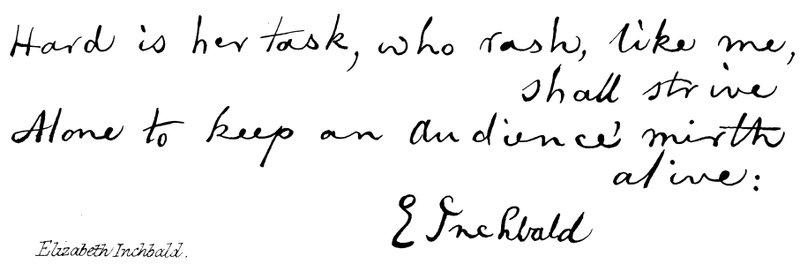 Hard is her task, who rash, like me,
shall strive
Alone to keep an audience' mirth
alive:
E Inchbald
Elizabeth Inchbald.